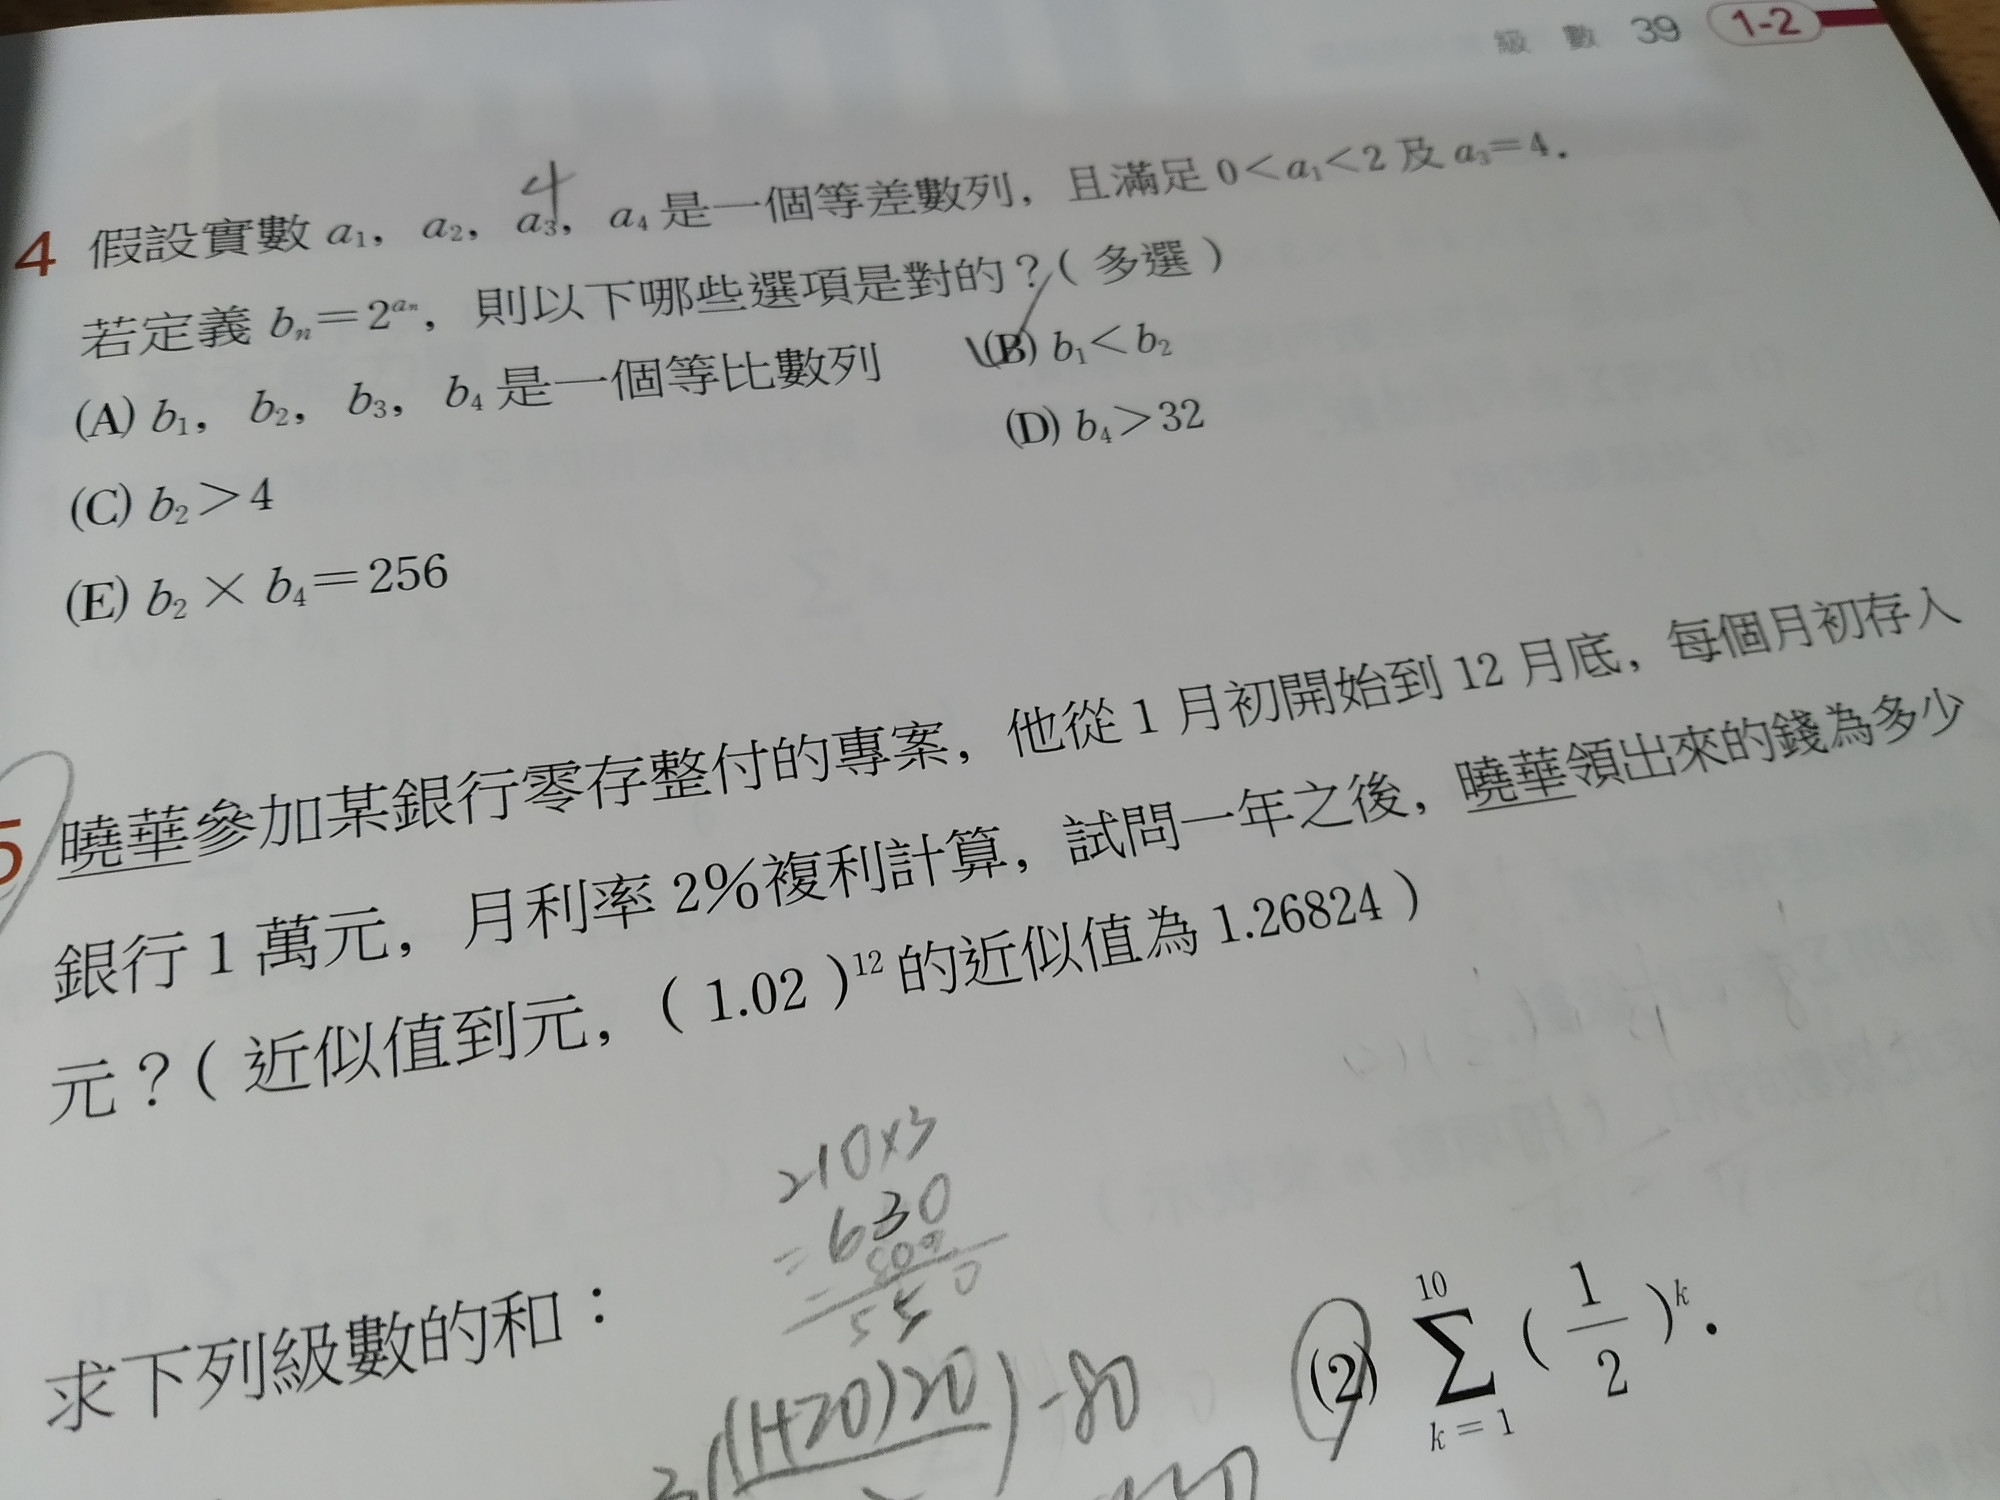 級 數 39 1-2
4
4 假設實數 a₁, a₂, a₃, a₄ 是一個等差數列, 且滿足 0<a₁<2 及 a₃=4.
若定義 bₙ=2^{aₙ}, 則以下哪些選項是對的?(多選)
(A) b₁, b₂, b₃, b₄ 是一個等比數列 (B) b₁<b₂
(C) b₂>4 (D) b₄>32
(E) b₂×b₄=256
5 曉華參加某銀行零存整付的專案, 他從 1 月初開始到 12 月底, 每個月初存入
銀行 1 萬元, 月利率 2%複利計算, 試問一年之後, 曉華領出來的錢為多少
元?(近似值到元, (1.02)¹² 的近似值為 1.26824)
210×3
=630
550
求下列級數的和:
(2) \sum_{k=1}^{10} (\frac{1}{2})^k.
(1+20)20)-80